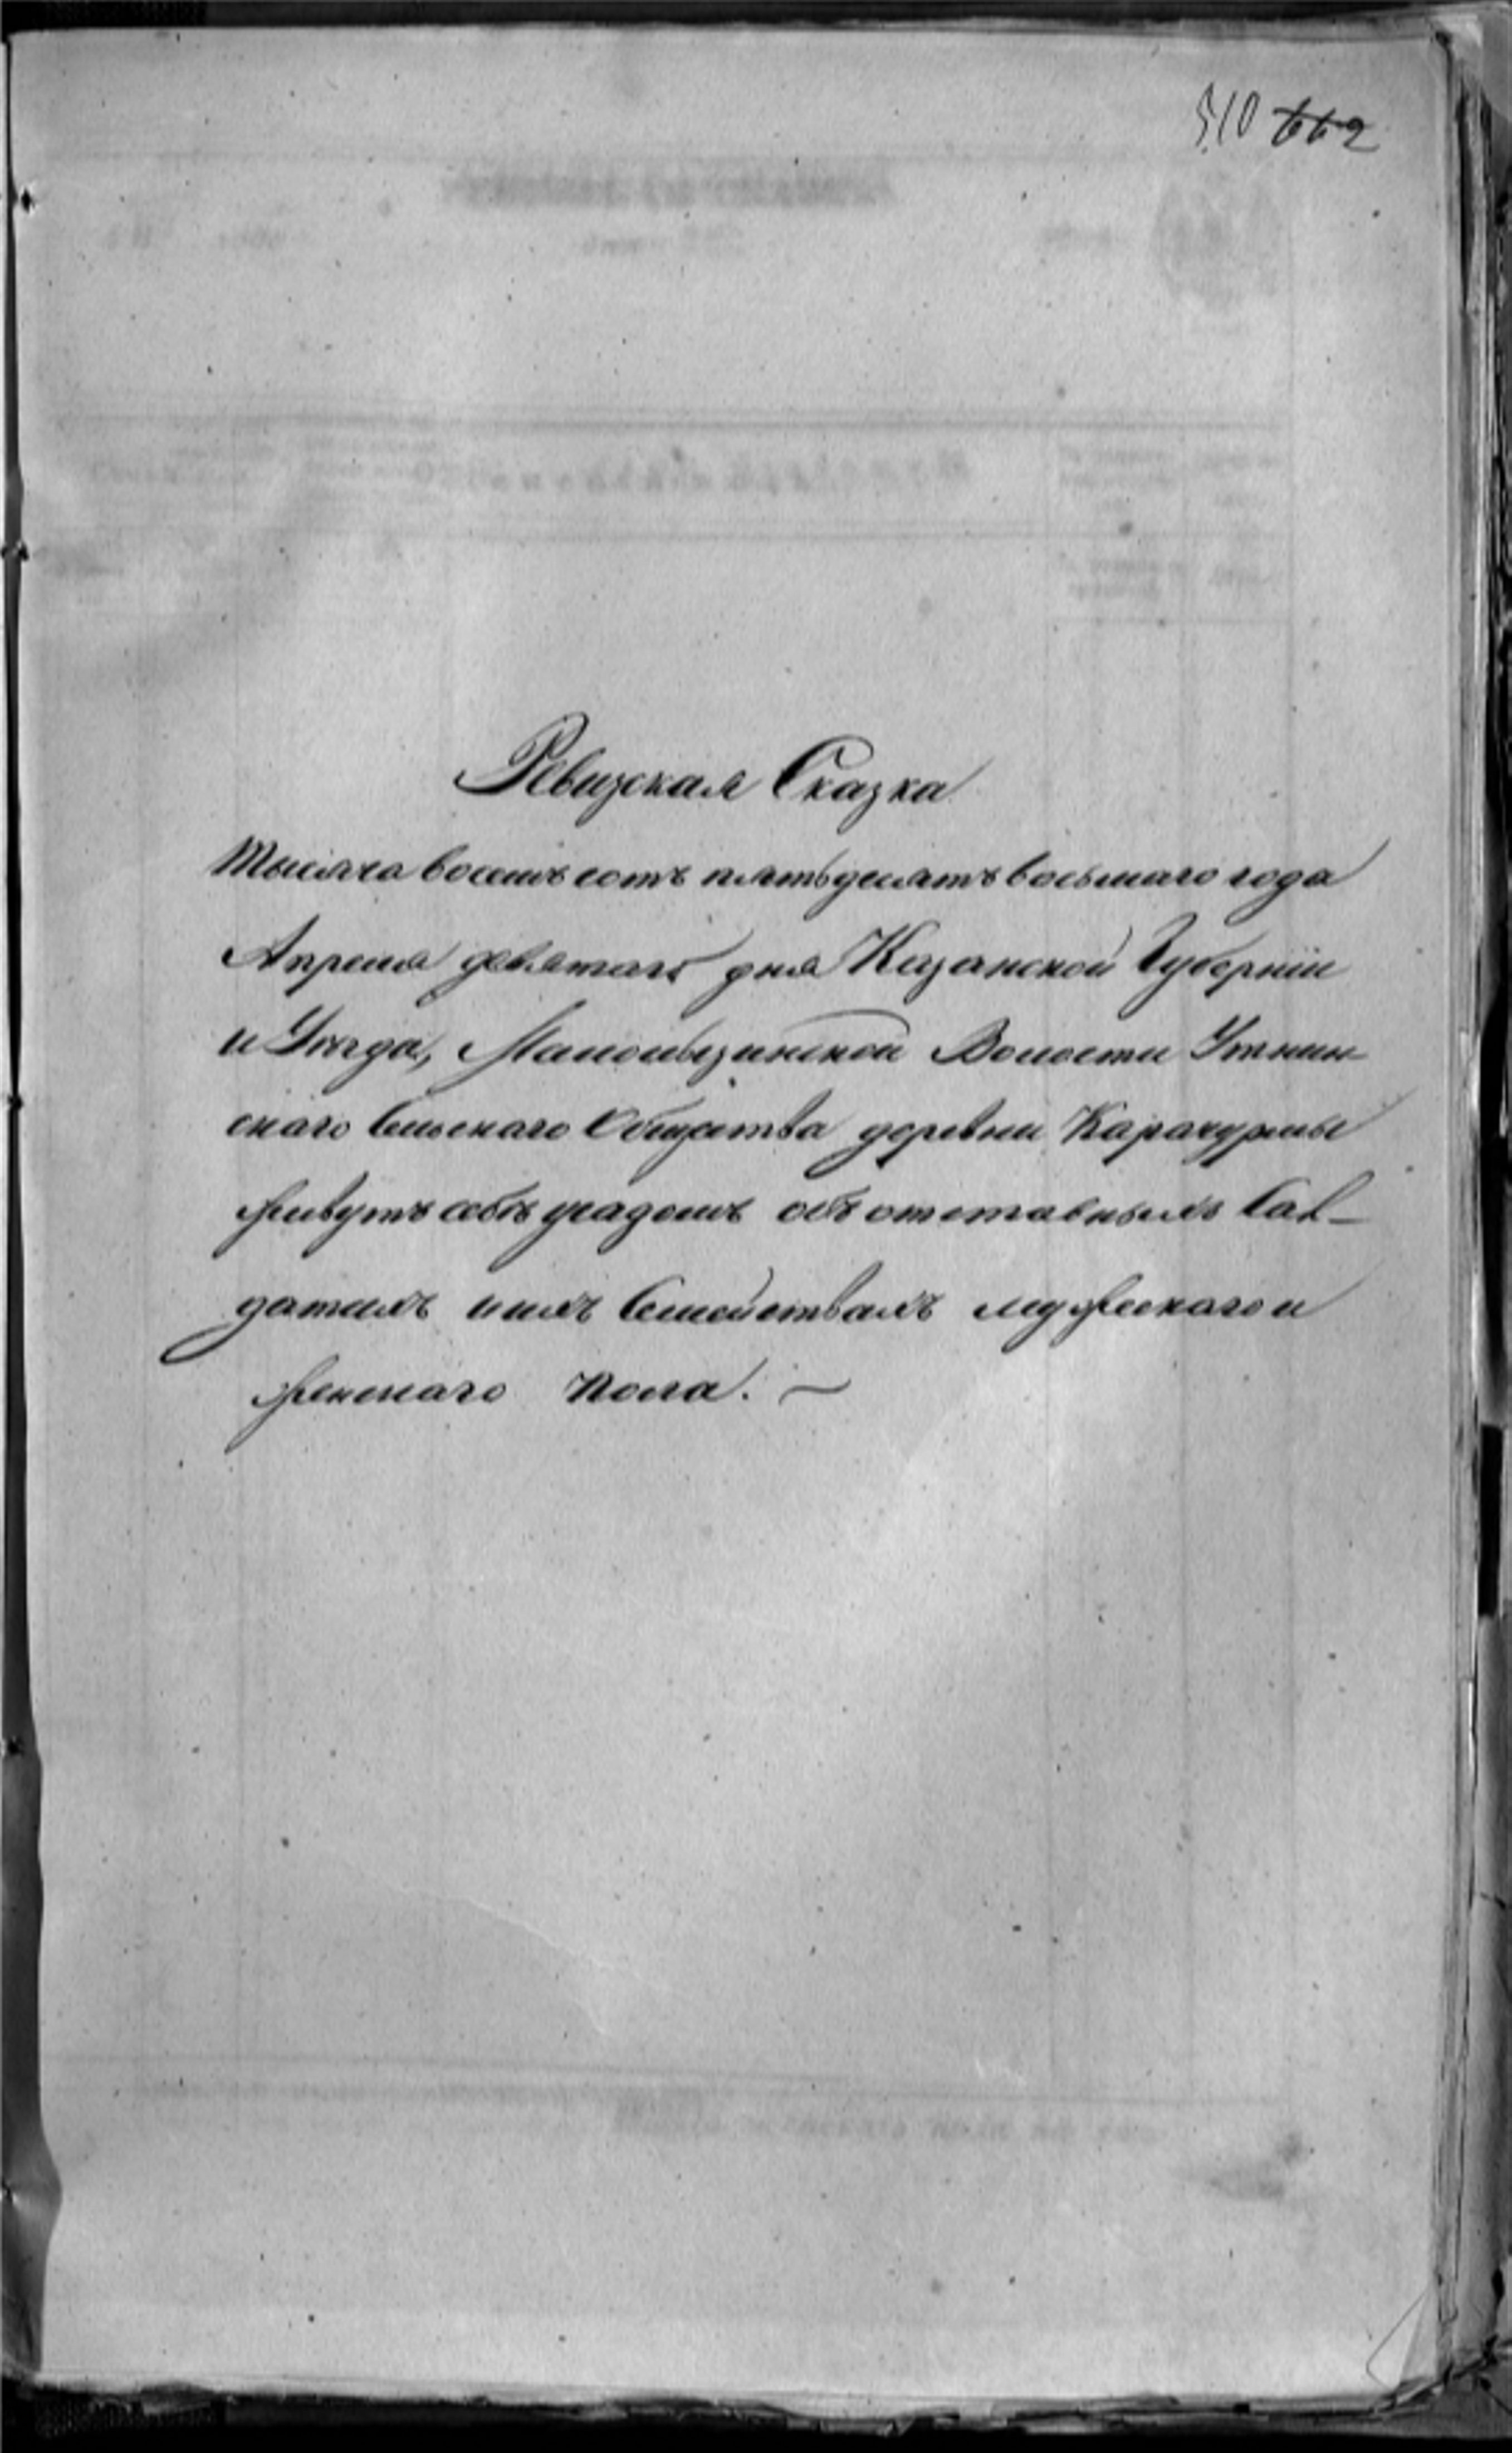 510 662
Ревизская Сказка
Тысяча восемь сотъ пятьдесятъ восьмаго года
Апреля девятаго дня Казанской Губерніи
и Уѣзда, Волости Утнин
скаго Сельскаго Общества деревни Карадурмы
живутъ объ отставныхъ Сал-
датахъ и ихъ Семействахъ мужескаго и
женскаго пола. —